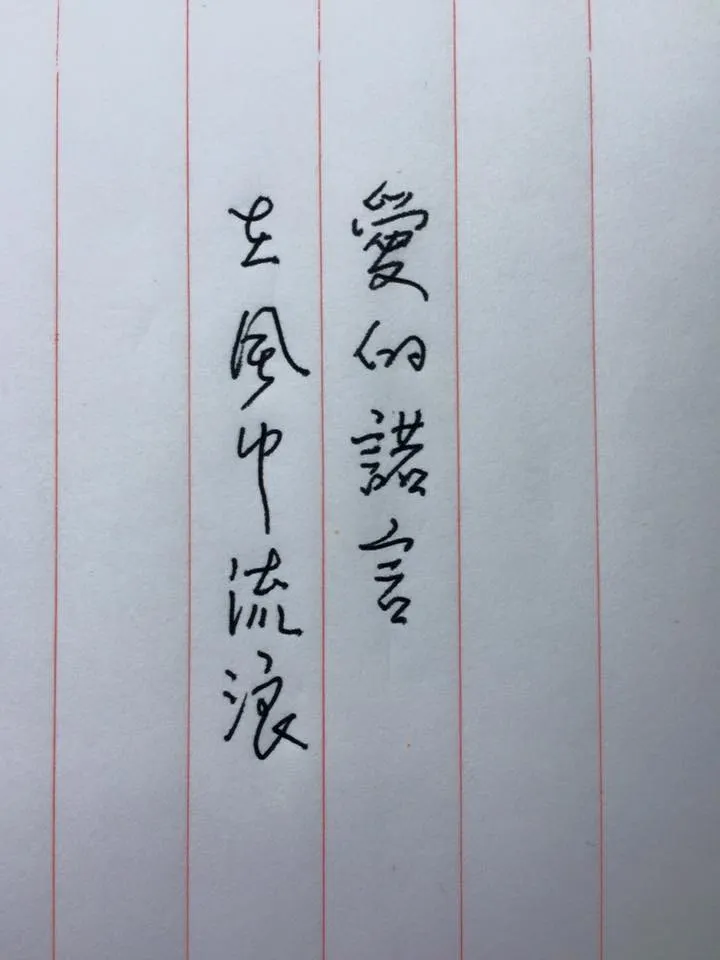 愛的諾言
在風中流浪